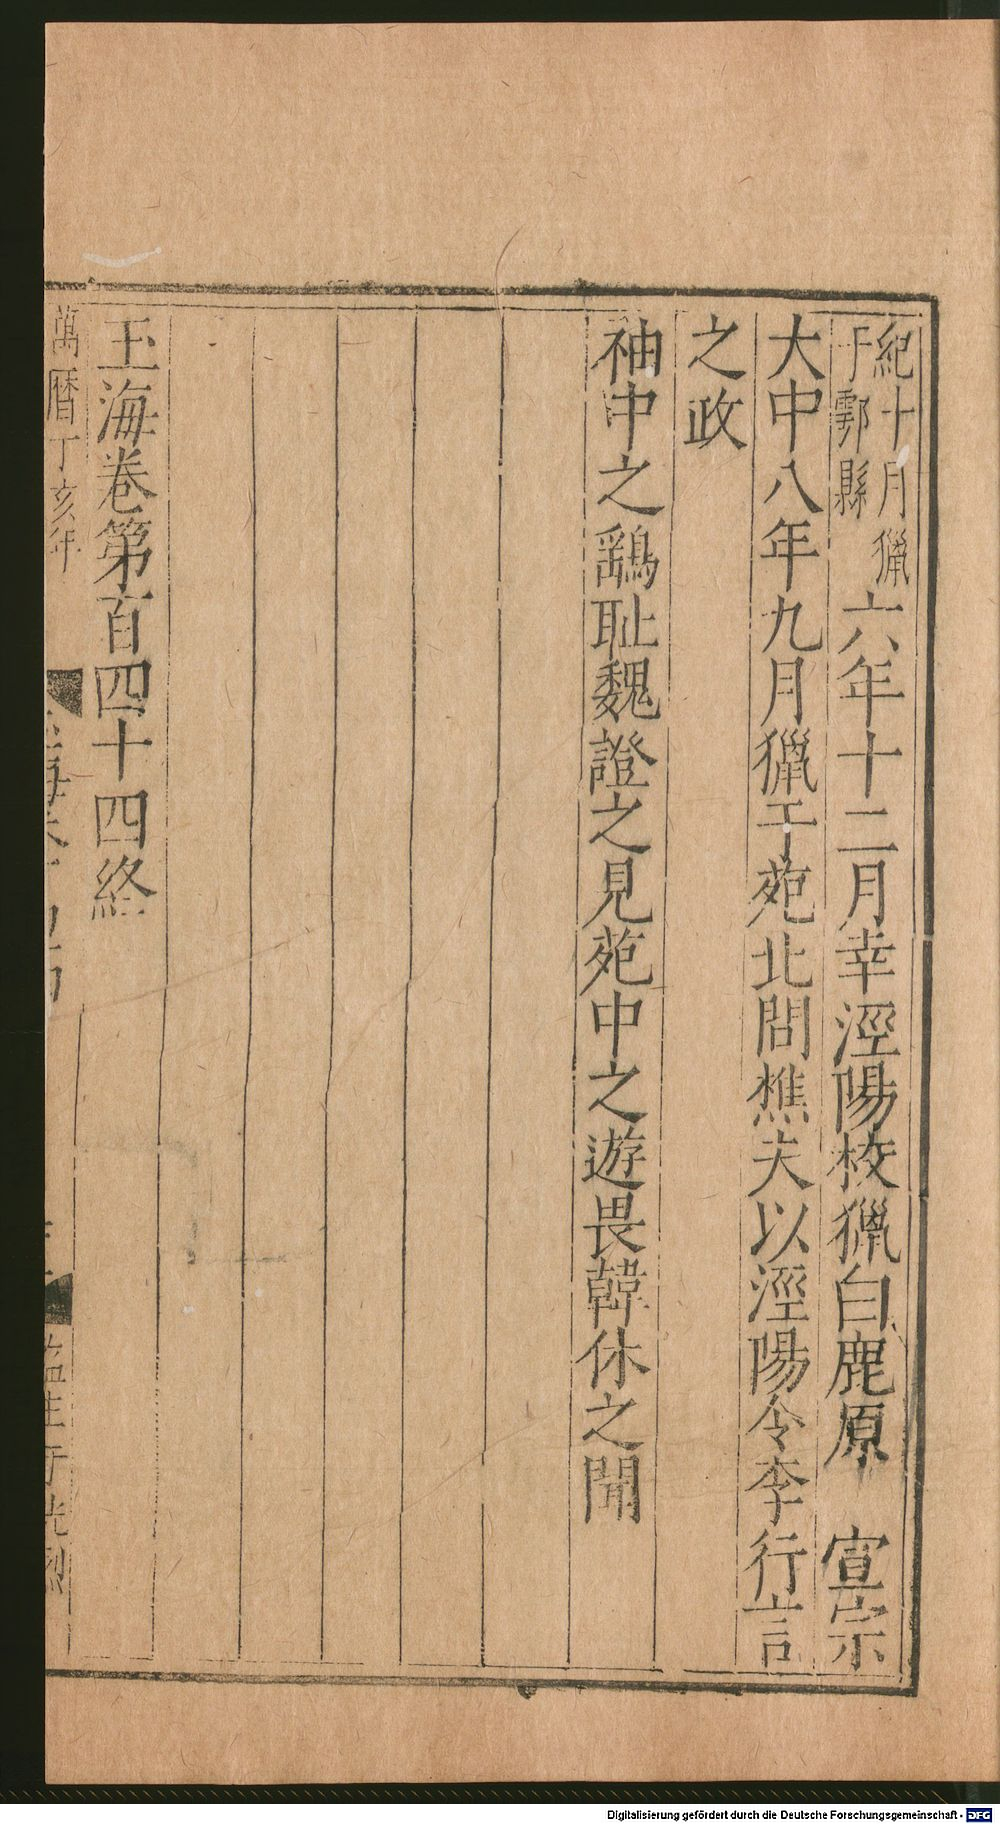 紀十月獵
于鄠縣
六年十二月幸涇陽校獵白鹿原　宣宗
大中八年九月獵于苑北問樵夫以涇陽令李行言
之政
袖中之鷂耻魏證之見苑中之遊畏韓休之聞
玉海卷第百四十四終
萬曆丁亥年
監生于光烈
Digitalisierung gefördert durch die Deutsche Forschungsgemeinschaft - DFG